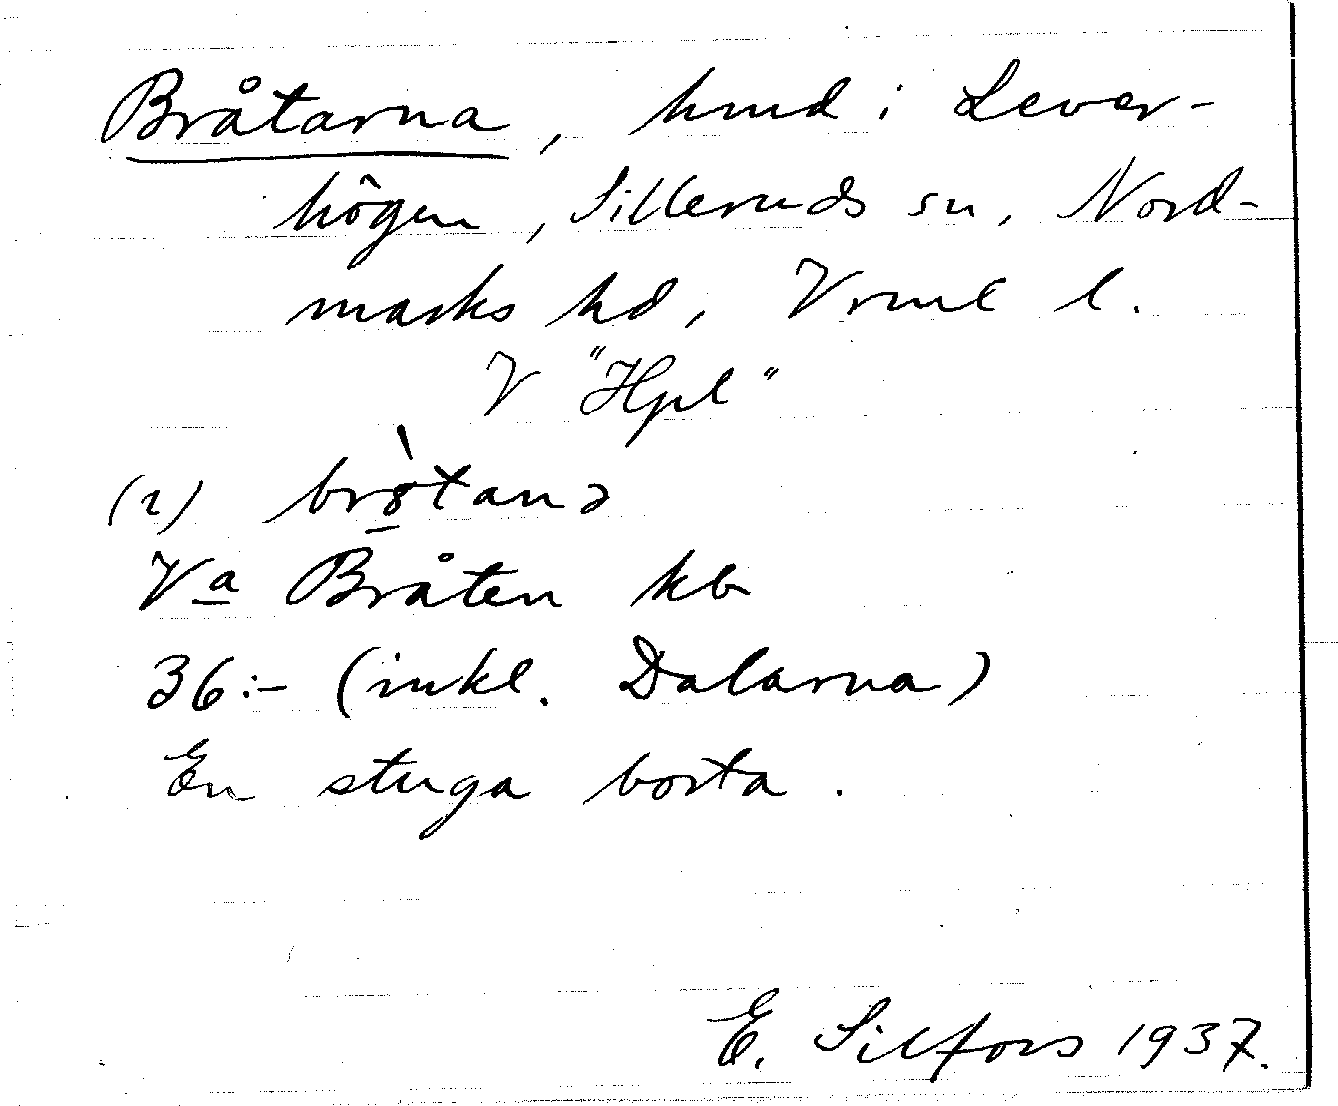 Bråtarna, hmd i Lever-
högen, Silleruds sn, Nord-
marks hd, Vrml l.
V "Hpl"
(2) brò̱tanə
Va Bråten kb
36:- (inkl. Dalarna)
En stuga borta.
E. Silfors 1937.